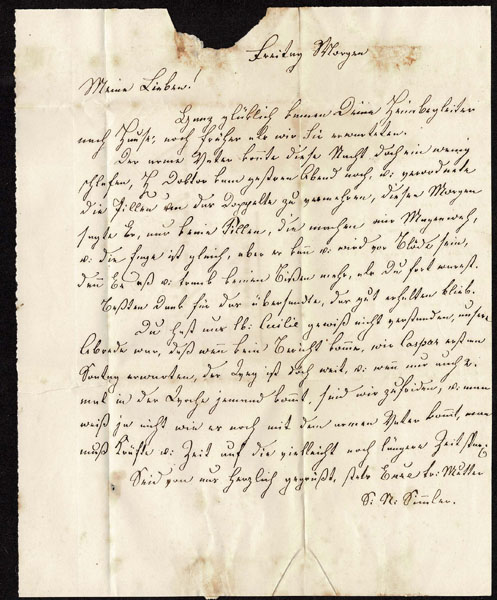 Freitag Morgen
Meine Lieben!
Ganz glücklich kamen Deine Heimbegleiter
nach Hause, noch früher als wir sie erwarteten.
Der arme Vater konnte diese Nacht doch ein wenig
schlafen, H Doktor kam gestern Abend noch, u: verordnete
die Pillen um das Doppelte zu vermehren, diesen Morgen
sagte Er, nur keine Pillen, die machen mir Magenweh,
u: die Enge ist gleich, aber er kann u: wird vor Blöde sein,
denn Er aß u: trank keinen Bißen mehr, als Du fort warest.
Besten Dank für das übersandte, das gut erhalten blieb.
Du hast uns lb: Cecilie gewiß nicht verstanden, unsere
Abrede war, daß wenn kein Bericht komme, wir Caspar erst am
Sontag erwarten, der Weg ist doch weit, u: wenn nur auch 2
mal in der Woche jemand komt, sind wir zufrieden, u: man
weiß ja nicht wie es noch mit dem armen Vater kommt, man
muß Kräfte u: Zeit auf die vielleicht noch längere Zeit
Seid von uns herzlich gegrüßt, stets Eure tr: Mutter
S: N: Simmler.